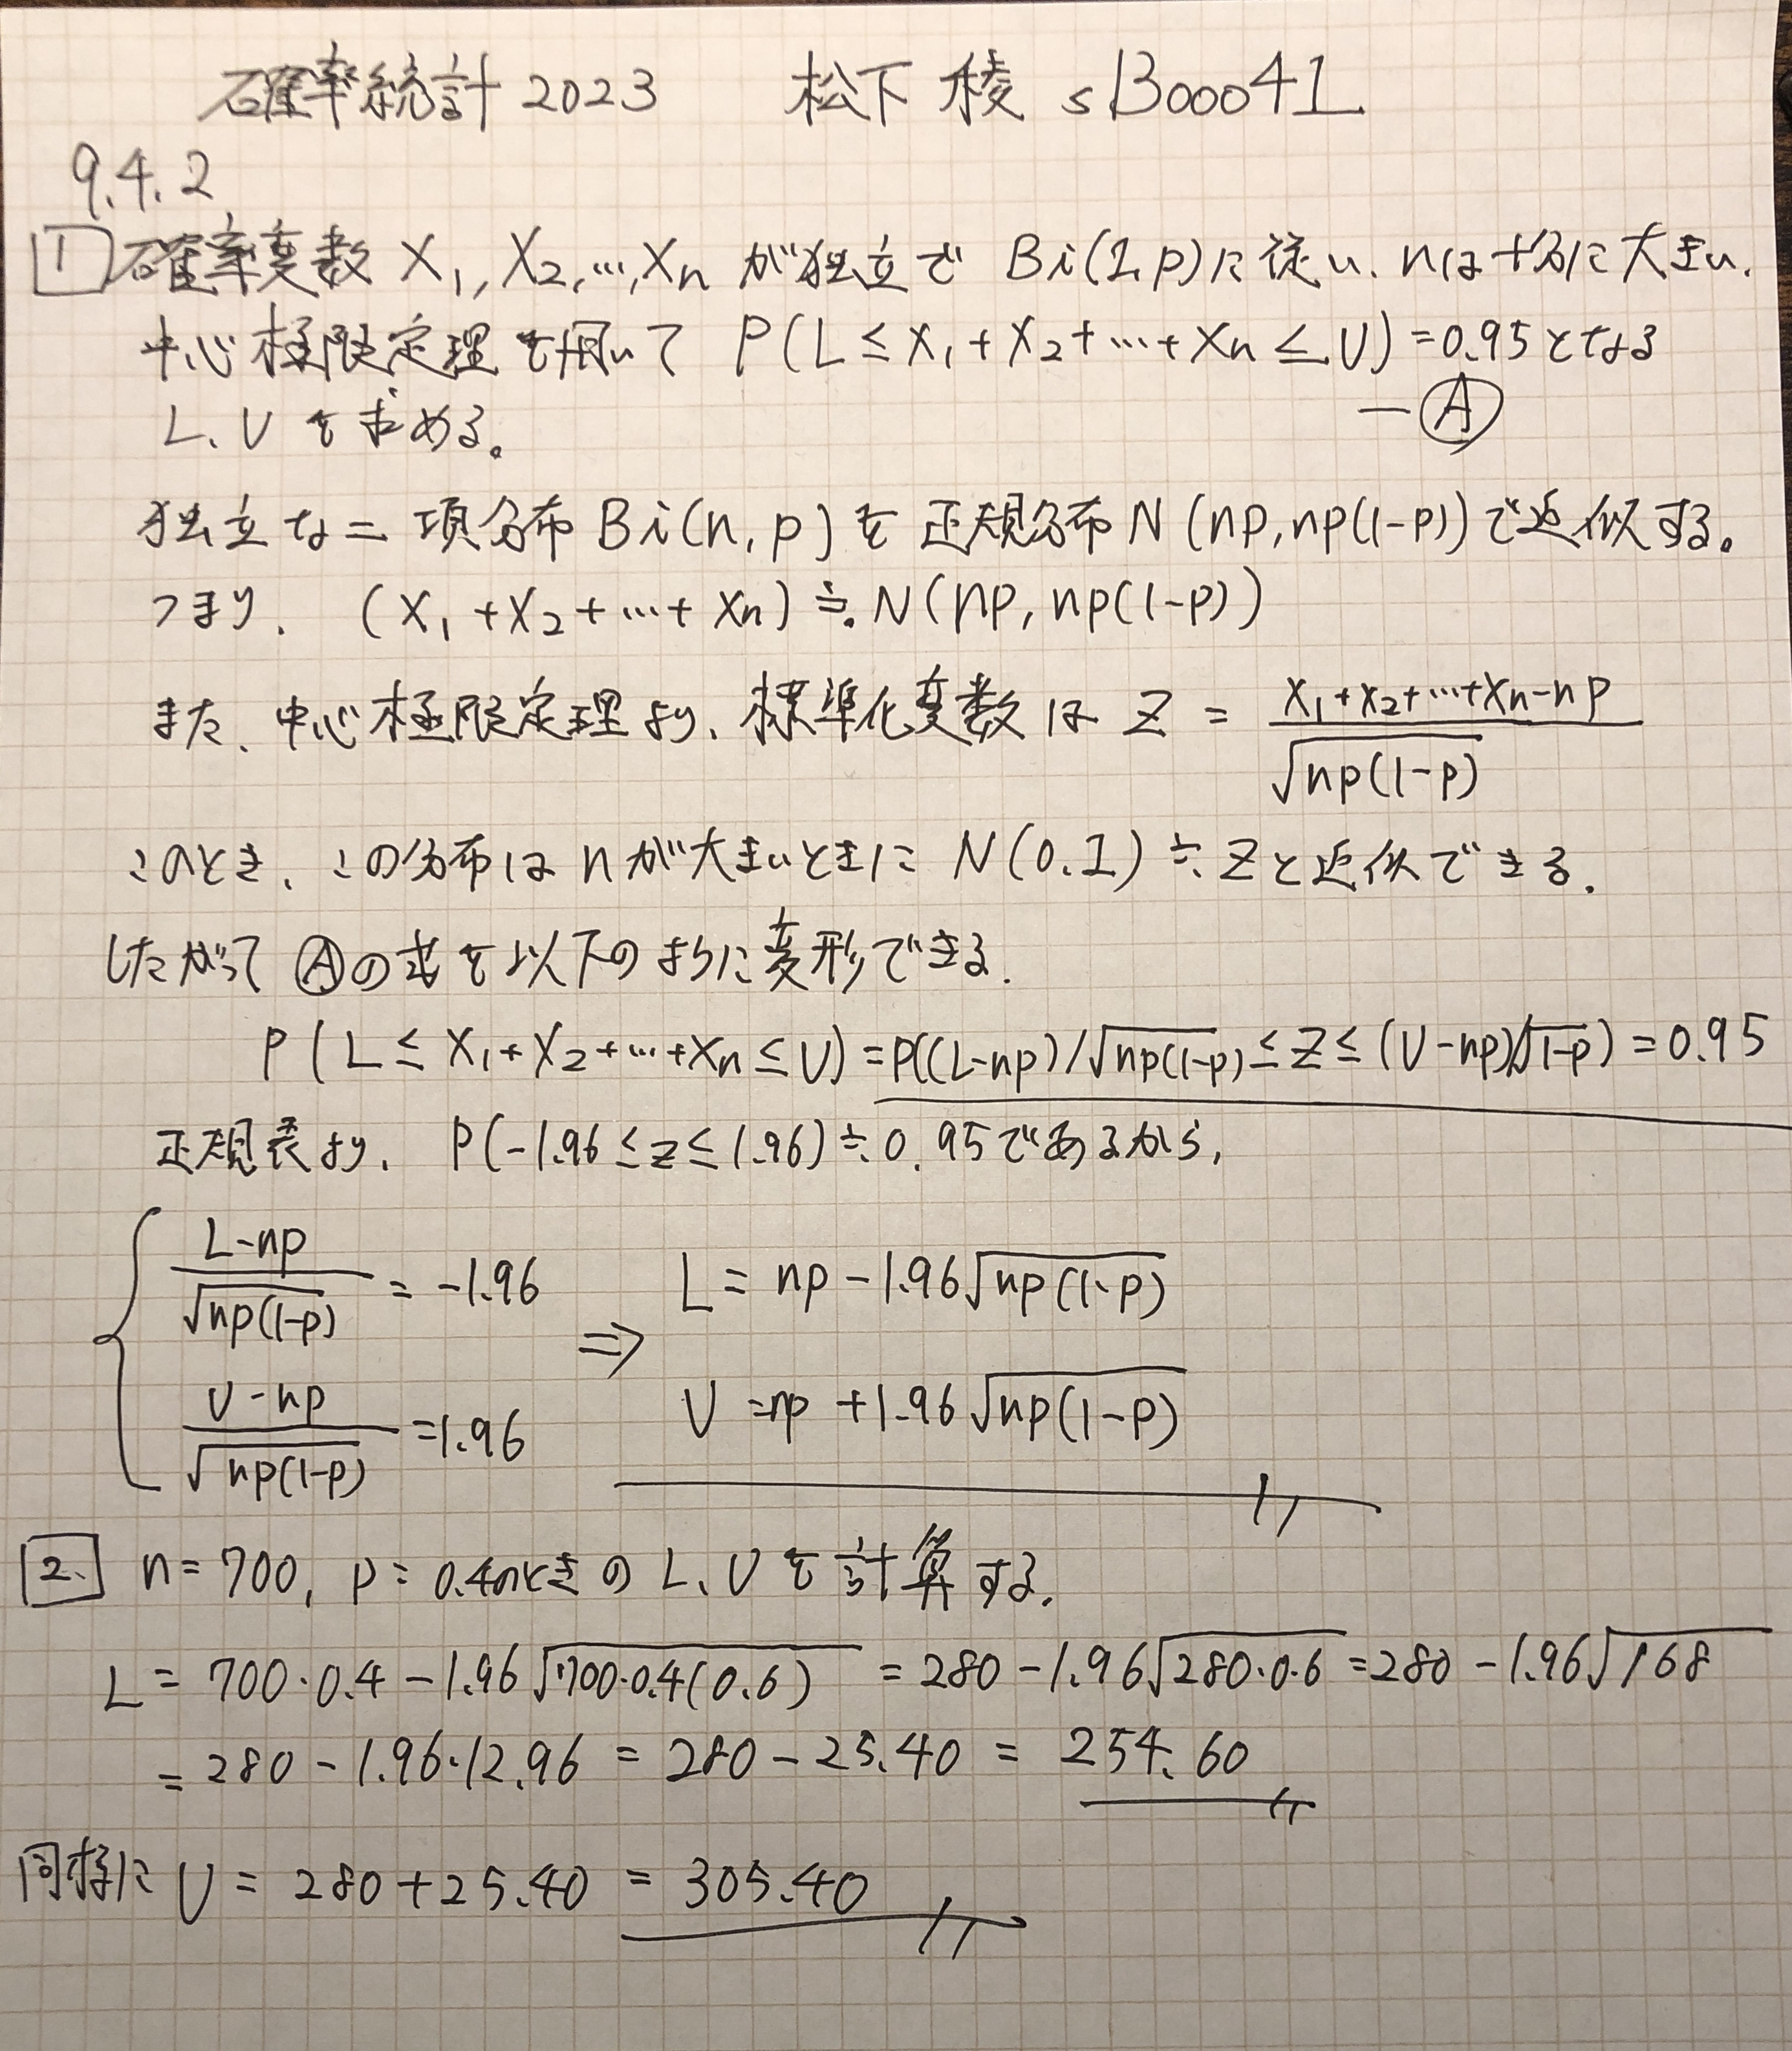 確率統計 2023 松下 稜 sB00041
9.4.2
1 確率変数 X₁, X₂, …, Xn が独立で Bi(1, p)に従い、nは十分に大きい.
中心極限定理を用いて P(L ≤ X₁ + X₂ + … + Xn ≤ U) = 0.95となる
— Ⓐ
L、U を求める。
独立な二項分布 Bi(n, p) を 正規分布 N (np, np(1-p)) で近似する。
つまり、 (X₁ + X₂ + … + Xn) ≒ N(np, np(1-p))
また、中心極限定理より、標準化変数は Z = (X₁+X₂+…+Xn-np) / √np(1-p)
このとき、この分布は nが大きいときに N(0.1) ≒ Zと近似できる.
したがって Ⓐの式を以下のように変形できる.
P (L ≤ X₁+X₂+…+Xn ≤ U) = P((L-np)/√np(1-p) ≤ Z ≤ (U-np)/√1-p) = 0.95
正規表より、 P(-1.96 ≤ z ≤ 1.96) ≒ 0.95であるから,
{ (L-np) / √np(1-p) = -1.96 ⇒ L = np - 1.96√np(1-p)
(U-np) / √np(1-p) = 1.96 U = np + 1.96√np(1-p)
2. n = 700, p = 0.4のときの L、U を計算する.
L = 700·0.4 - 1.96√700·0.4(0.6) = 280 - 1.96√280·0.6 = 280 - 1.96√168
= 280 - 1.96·12.96 = 280 - 25.40 = 254.60
同様に U = 280 + 25.40 = 305.40